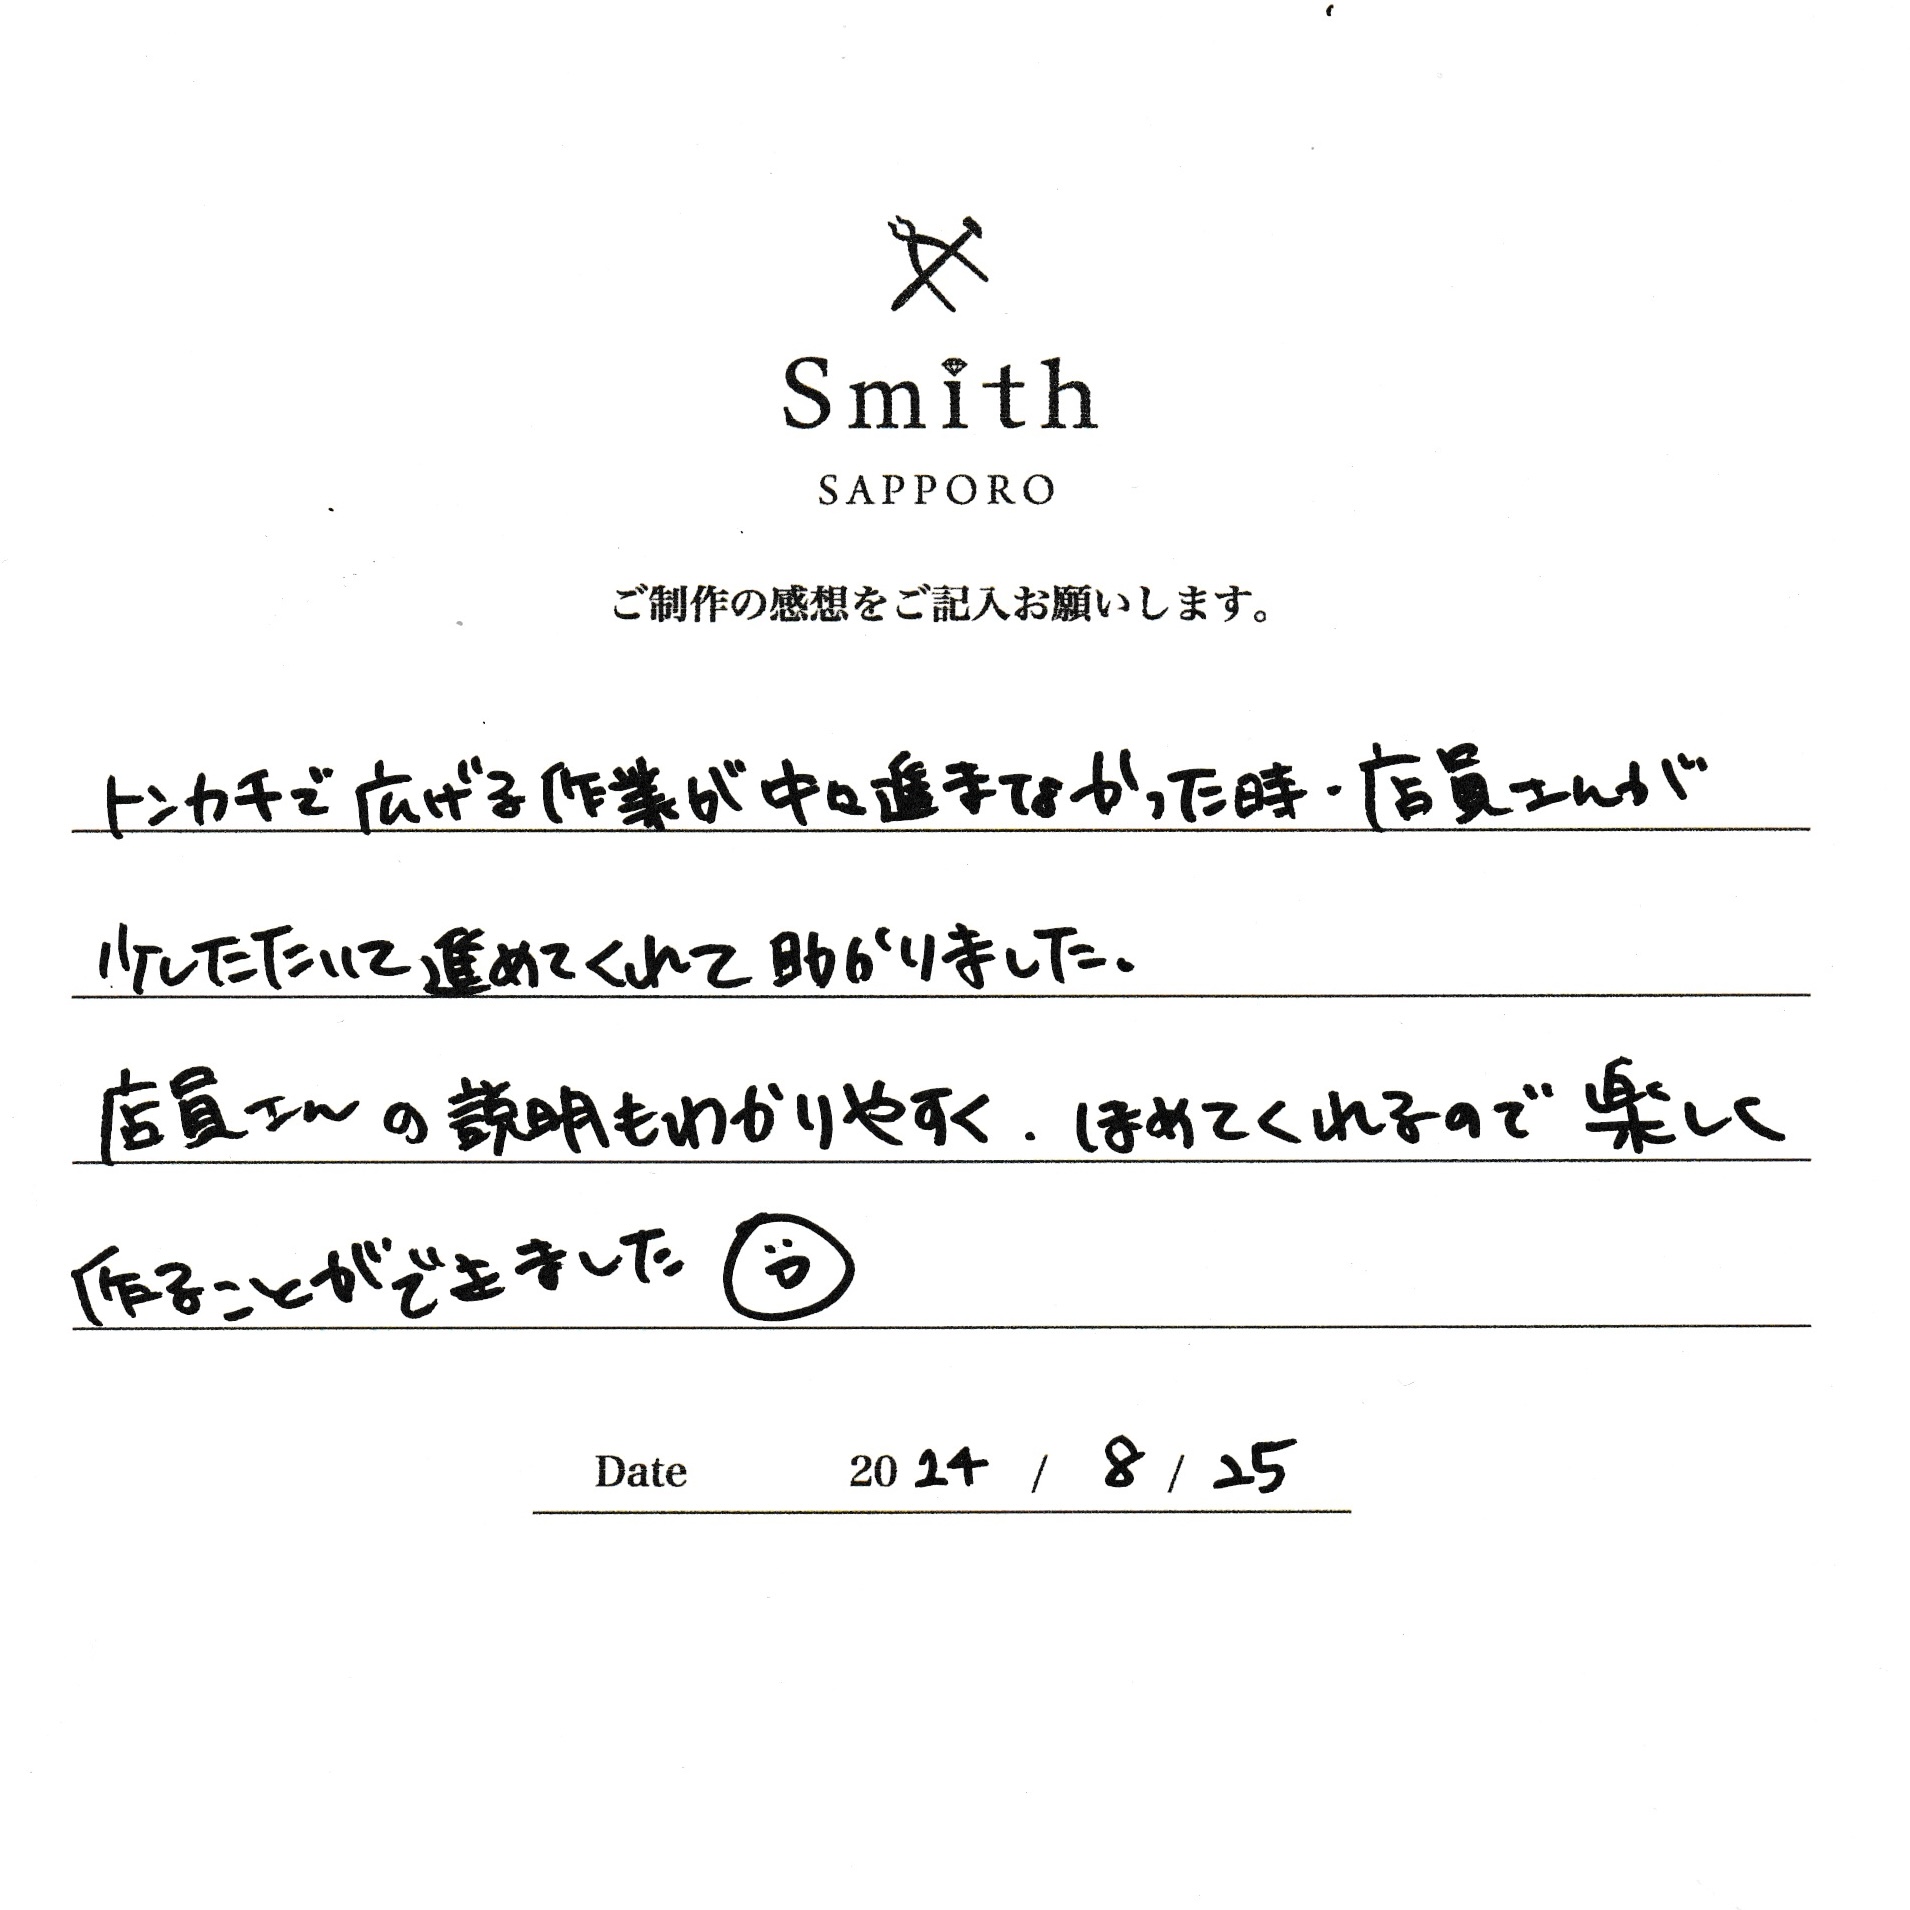 Smith
SAPPORO
ご制作の感想をご記入お願いします。
トンカチで広げる作業が中々進まなかった時、店員さんが
少したたいて進めてくれて助かりました。
店員さんの説明もわかりやすく、ほめてくれるので楽しく
作ることができました
Date 2024 / 8 / 25